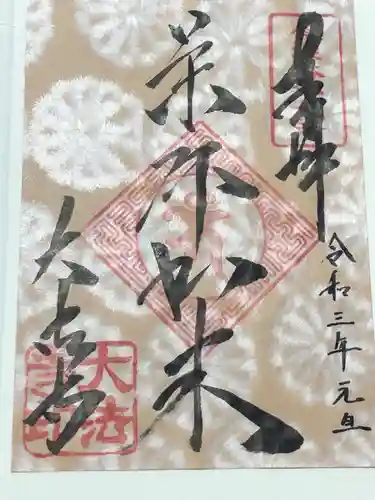 奉拝
令和三年元旦
薬師如来
大法寺
大法